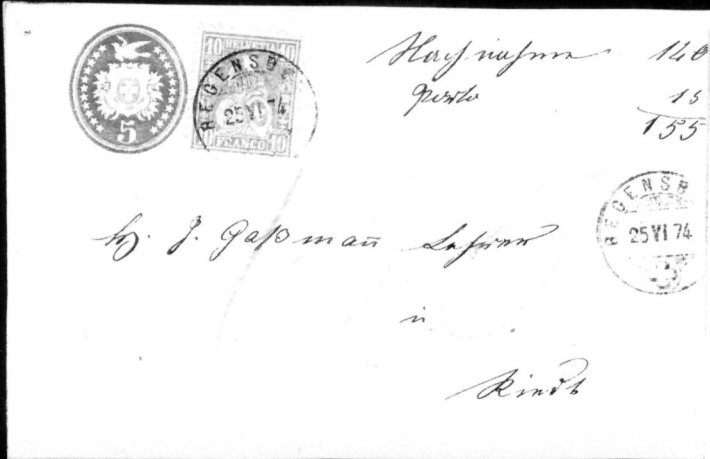 5
10 HELVETIA 10
FRANCO
10 10
REGENSB
25 VI 74
Nachnahme 140
Porto 15
155
REGENSB
25 VI 74
H. J. Gaßmañ Lehrer
in
Riedt